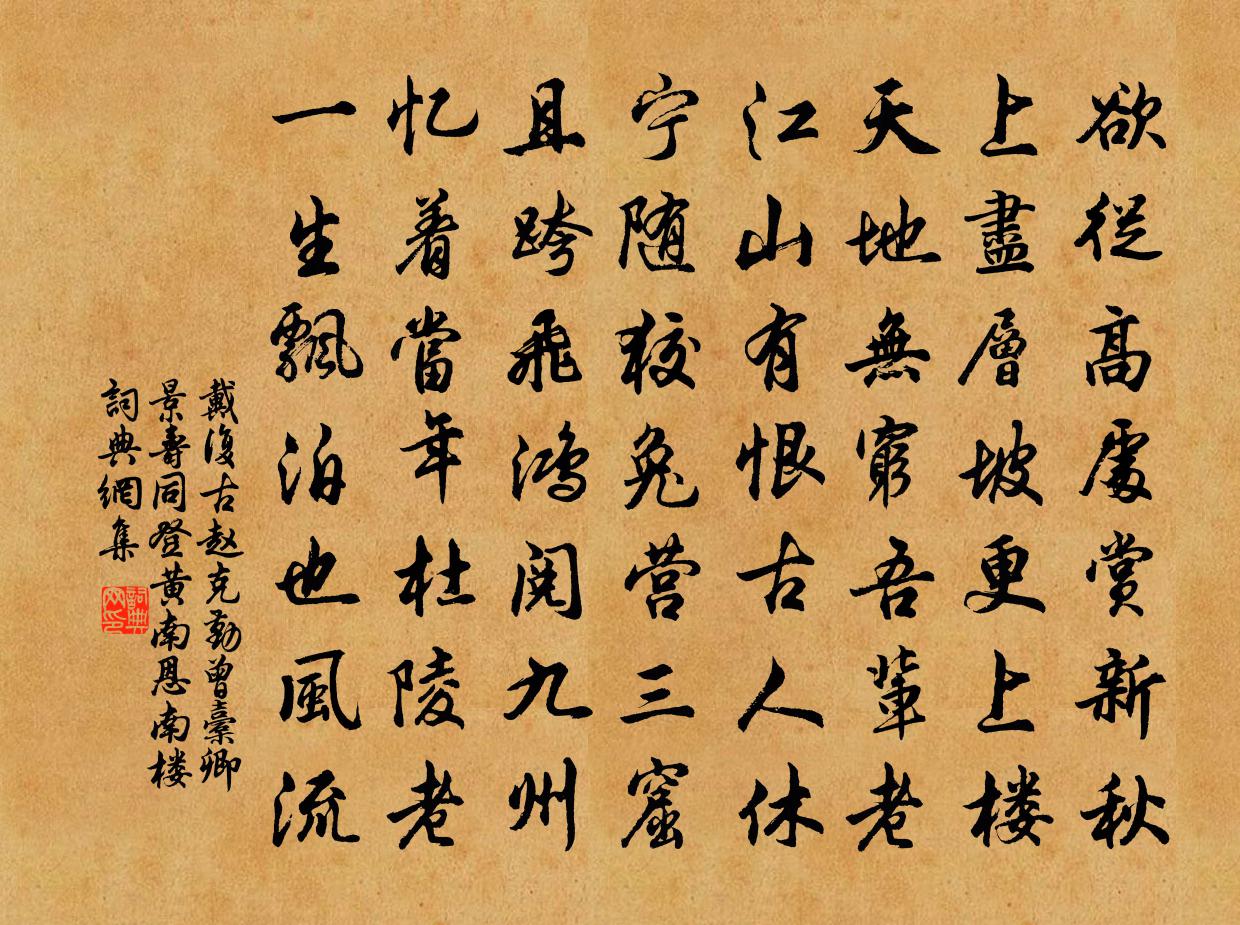 欲從高處賞新秋
上盡層坡更上楼
天地無窮吾輩老
江山有恨古人休
宁随狡兔营三窟
且跨飛鸿阅九州
忆着當年杜陵老
一生飄泊也風流
戴復古赵克勤曾橐卿
景壽同登黄南恩南楼
詞典網集
詞典網印